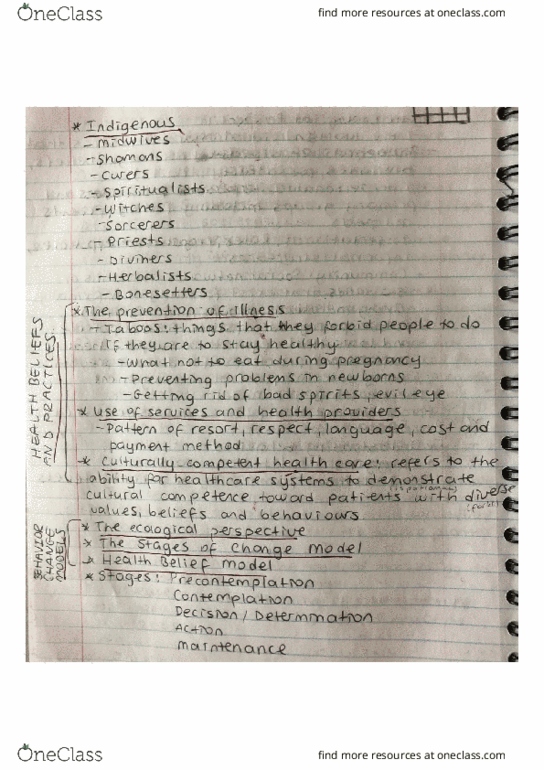 OneClass
find more resources at oneclass.com
* Indigenous
- midwives
- Shamans
- Curers
- Spiritualists
- Witches
- Sorcerers
- Priests
- Diviners
- Herbalists
- Bonesetters
HEALTH BELIEFS
AND PRACTICES
* The prevention of illness
- Taboos: things that they forbid people to do
if they are to stay healthy
- What not to eat during pregnancy
- Preventing problems in newborns
- Getting rid of bad spirits, evil eye
* Use of services and health providers
- Pattern of resort, respect, language, cost and
payment method
* Culturally competent health care: refers to the
ability for healthcare systems to demonstrate
cultural competence toward patients with diverse
values, beliefs and behaviours
BEHAVIOR
CHANGE
MODELS
* The ecological perspective
* The Stages of Change model
* Health Belief model
* Stages: Precontemplation
Contemplation
Decision / Determination
Action
maintenance
OneClass
find more resources at oneclass.com